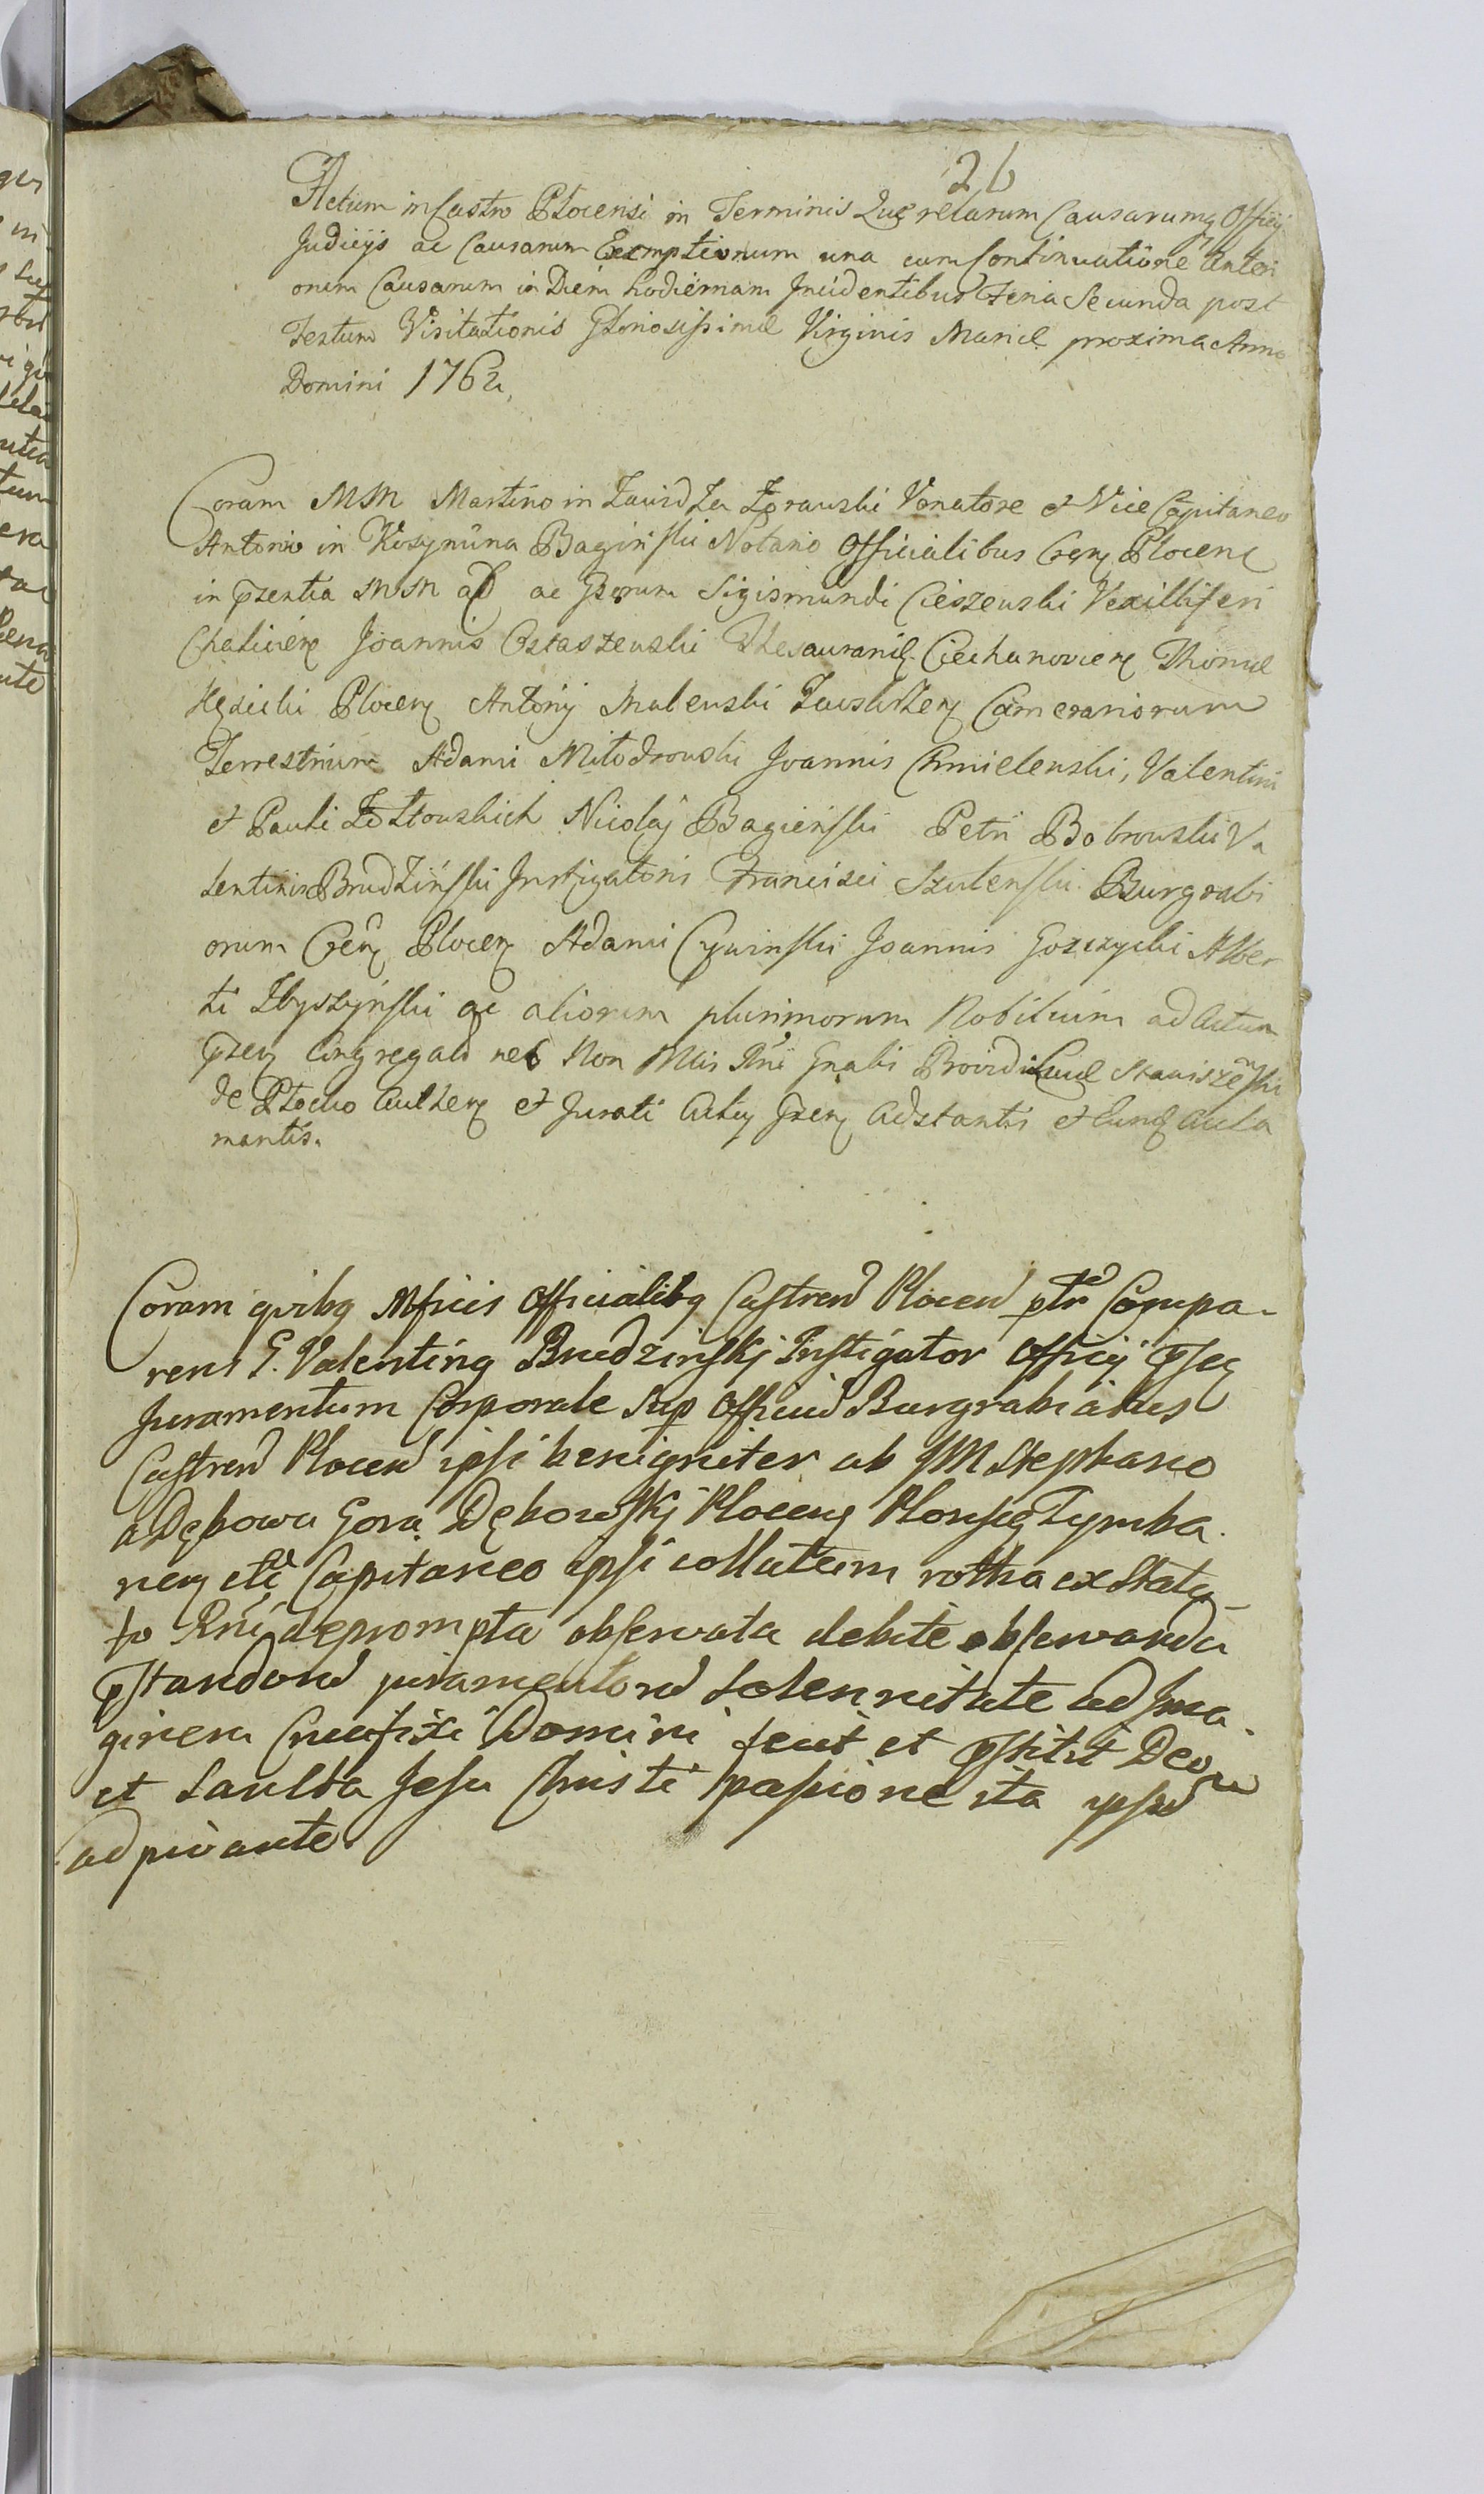 26
Actum in Castro Plocensi in Terminis Querelarum Causarumq Officij
Judicijs ac Causarum Exemptionum una cum Continuatione Anteri
orum Causarum in Diem hodiernam Incidentibus Feria Secunda post
Festum Visitationis Gloriosissimae Virginis Mariae proxima Anno
Domini 1762
Coram MM Martino in Zawidza Żorawski Venatore et Vice Capitaneo
Antonio in Baginski Notario Officialibus Plocen
in pzentia MM ac Gsorum Sigismundi Cieszewski Vexilliferi
Joannis Ostaszewski Thesaurarij Ciechanovien Thomae
Plocen Antonij Malewski Camerariorum
Terrestrium Adami Miłodrowski Joannis Chmielewski, Valentini
et Pauli Żółtowskich Nicolaj Bagieński Petri Bobrowski Va
lentini Brudziński Instigatoris Francisci Szulenski Burgrabi
orum Plocen Adami Cywinski Joannis Gozczycki Alber
ti Zbyszyński ac aliorum plurimorum Nobilium ad Actum
pzen Congregato nec Non Providi
de Płocko et Jurati pzen Adstantis et Acla
mantis.
Coram quibq Mficis Officialibq Castren Plocen ptr Compa-
rens G. Valentinq Brudzinskj Instigator Officij psen
Juramentum Corporale sup Officiu Burgrabiatus
Castren Plocen ipsi benigniter ab JM Stephano
a Dębowa Gora Dębowskj Plocen Plonsq Tymba-
ney etc Capitaneo ipsi collatum rotha ex Statu-
to Rni deprompta observata debite observanda
pstandoru juramentoru solennitate ad Jma-
ginem Crucifixi Domini fecit et pstitit Deo
et Sancta Jesu Christi passione ita ipsu
adjuvante